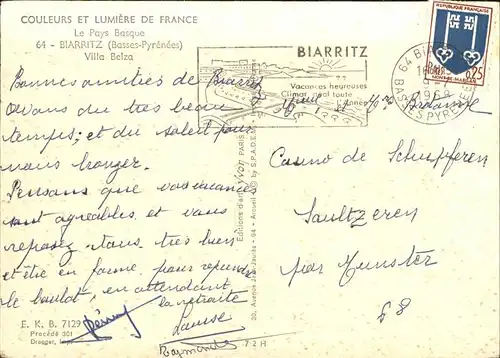 COULEURS ET LUMIÈRE DE FRANCE
Le Pays Basque
64 - BIARRITZ (Basses-Pyrénées)
Villa Belza
Bonnes amitiés de Biarritz
Avons du très beau
temps; et du soleil pour
nous bronzer.
Pensons que vos vacances
sont agréables et vous
reposez tous très bien
et être en forme pour reprendre
le boulot, en attendant
la retraite
Louise
Raymonde
E. K. B. 7129
Procédé 301
Draeger, Imp.
72 H
Editions d'art YVON PARIS
by S.P.A.D.E.M.
BIARRITZ
Vacances heureuses
Climat idéal toute
année
RÉPUBLIQUE FRANÇAISE
0,25
MONT-DE-MARSAN
64 BIARRITZ
1966
BASSES PYRENEES
Casino de Schupferen
Saultzeren
par Munster
68